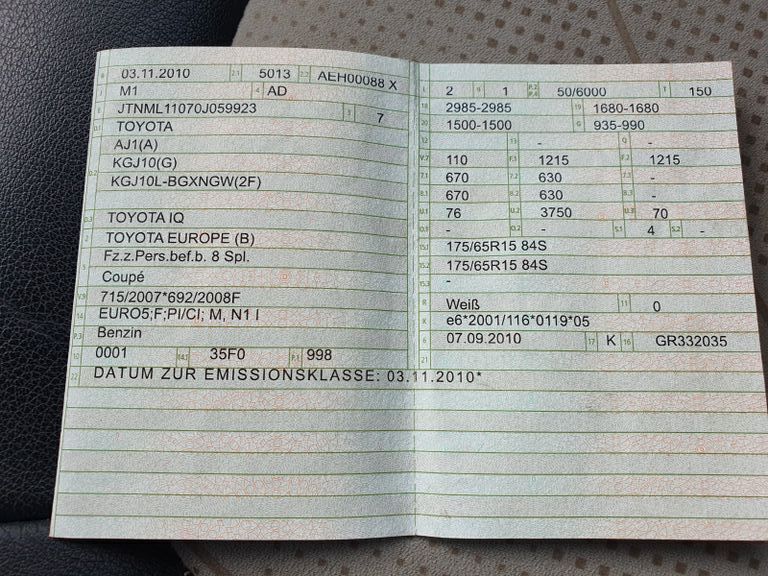 B 03.11.2010 2.1 5013 2.2 AEH00088 X
J M1 4 AD
E JTNML11070J059923 3 7
D.1 TOYOTA
AJ1(A)
D.2 KGJ10(G)
KGJ10L-BGXNGW(2F)
D.3 TOYOTA IQ
2 TOYOTA EUROPE (B)
5 Fz.z.Pers.bef.b. 8 Spl.
Coupé
V.9 715/2007*692/2008F
14 EURO5;F;PI/CI; M, N1 I
P.3 Benzin
10 0001 14.1 35F0 P.1 998
22 DATUM ZUR EMISSIONSKLASSE: 03.11.2010*
L 2 9 1 P.2 P.4 50/6000 T 150
18 2985-2985 19 1680-1680
20 1500-1500 G 935-990
12 - 13 - Q -
V.7 110 F.1 1215 F.2 1215
7.1 670 7.2 630 7.3 -
8.1 670 8.2 630 8.3 -
U.1 76 U.2 3750 U.3 70
O.1 - O.2 - S.1 4 S.2 -
15.1 175/65R15 84S
15.2 175/65R15 84S
15.3 -
R Weiß 11 0
K e6*2001/116*0119*05
6 07.09.2010 17 K 16 GR332035
21